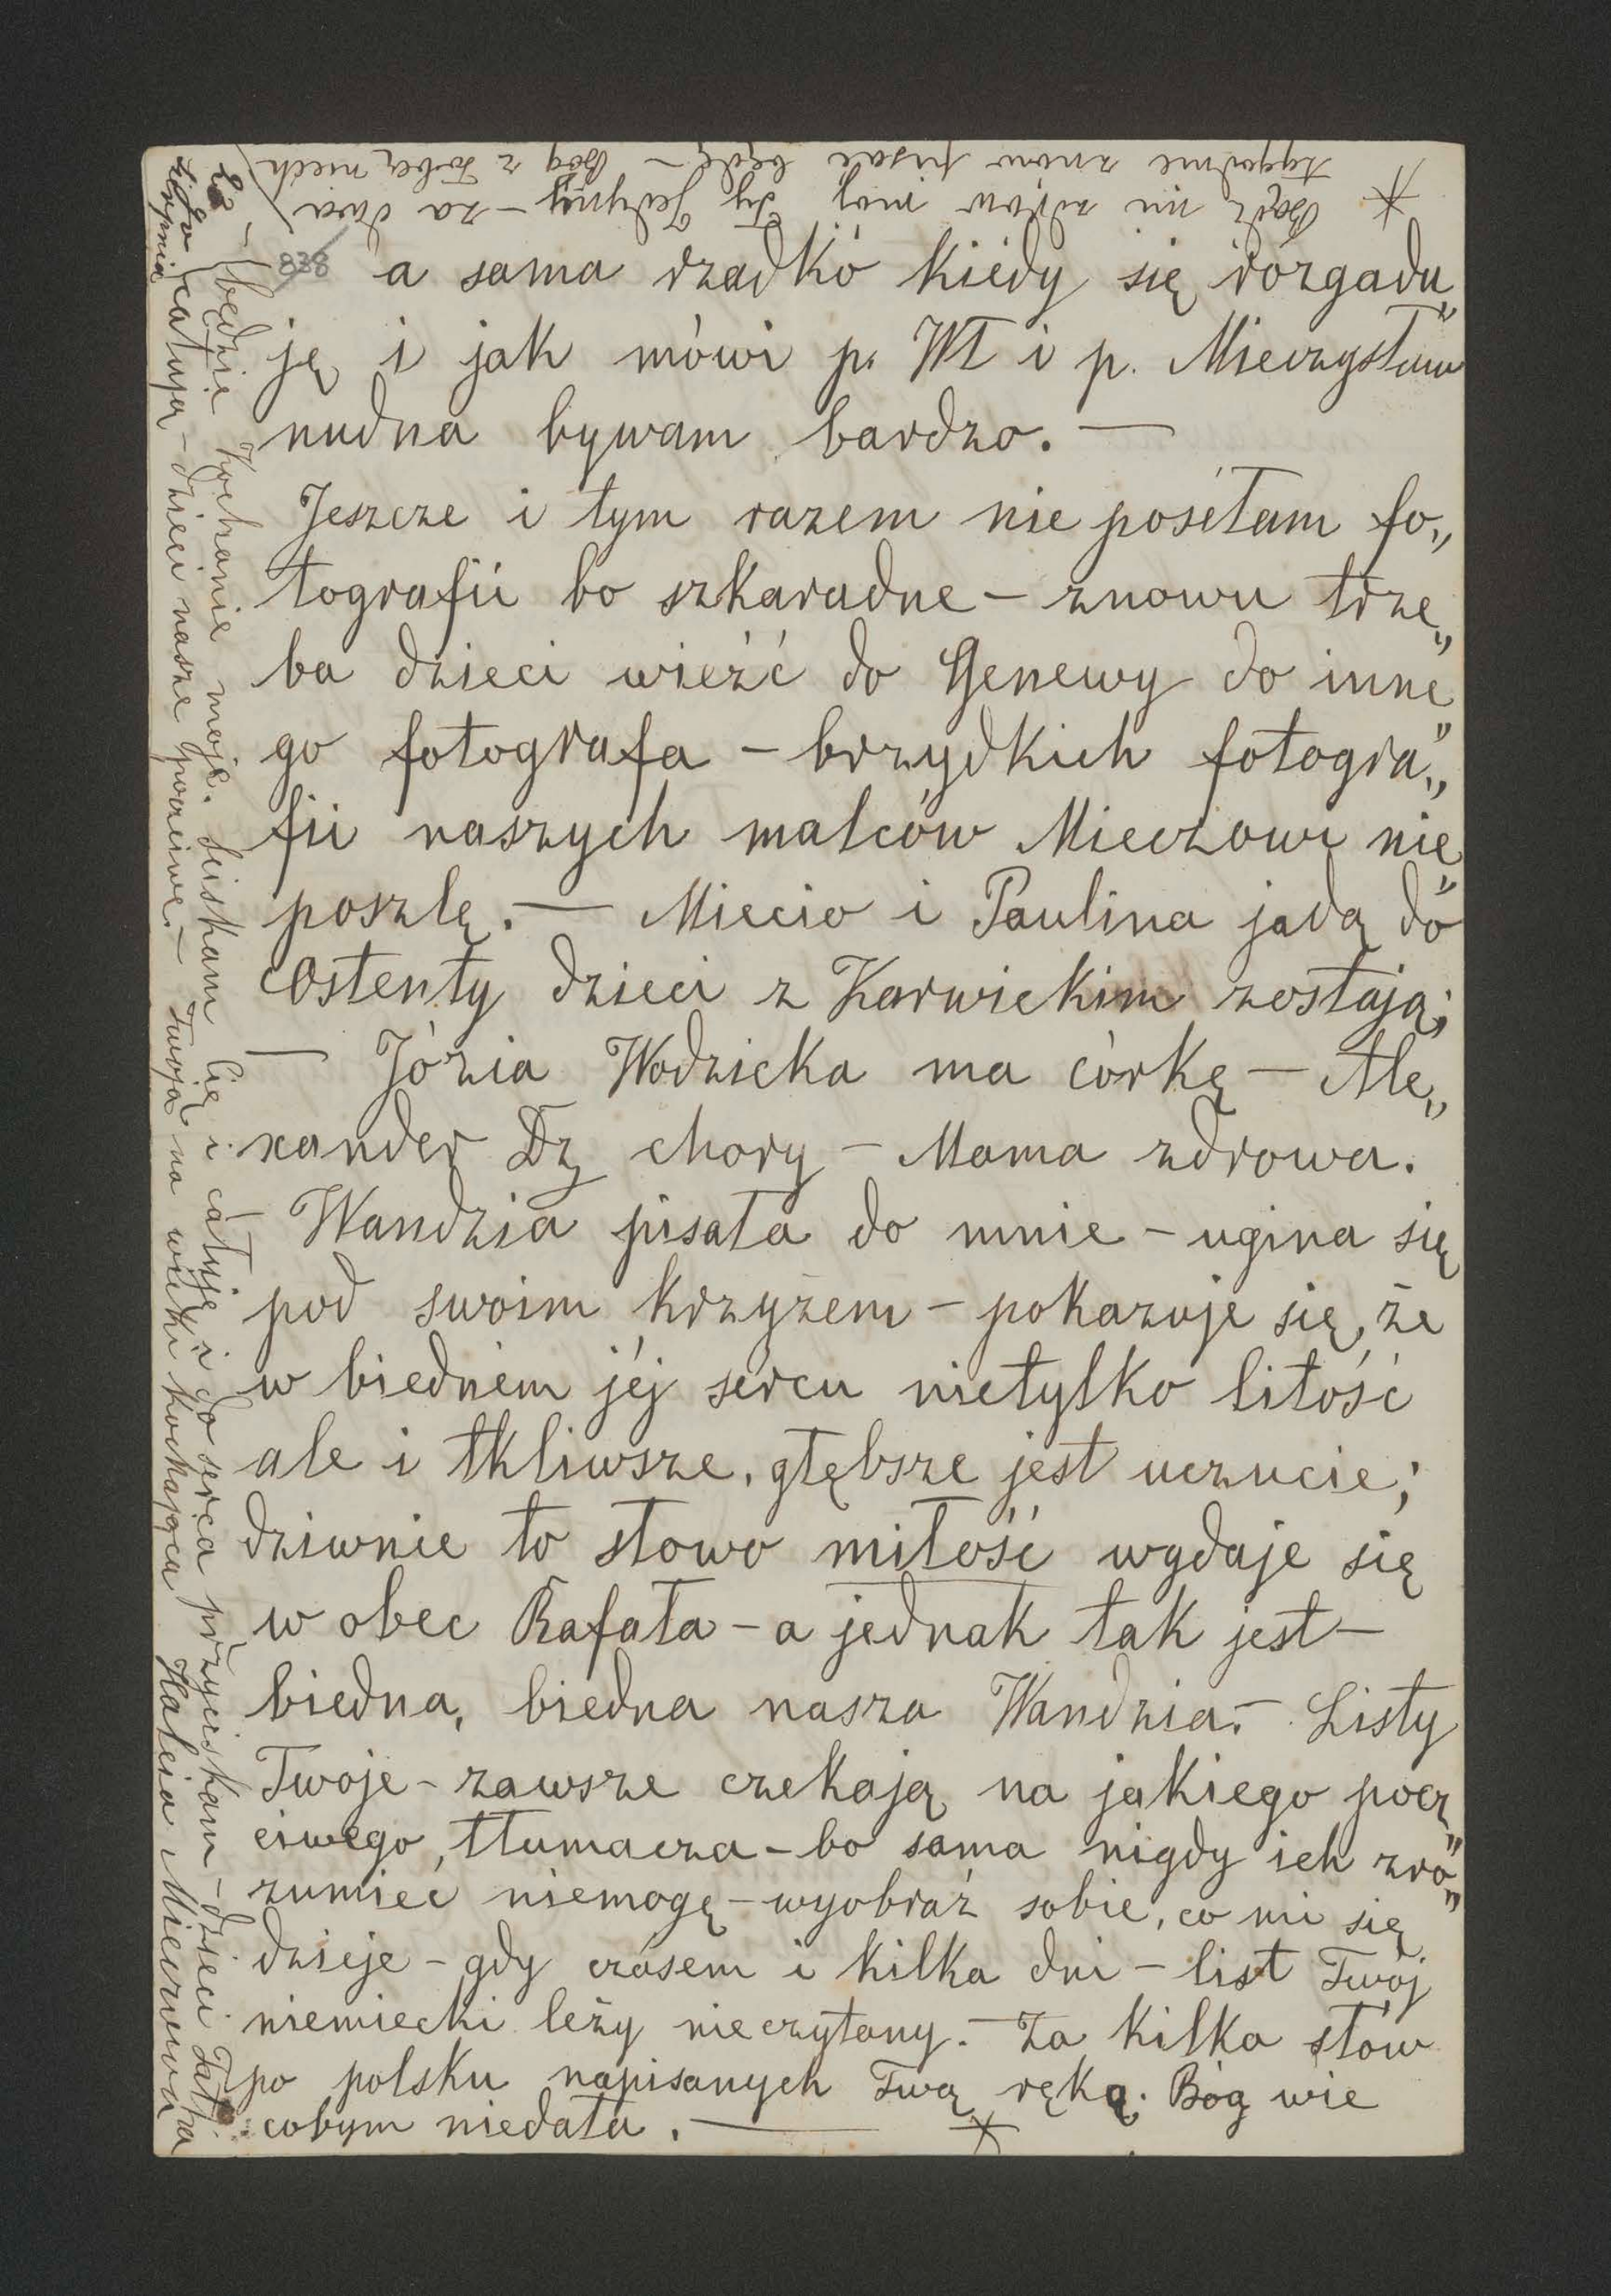 838
a sama rzadko kiedy się rozgadu„
ję i jak mówi p. Wł i p. Mieczysław
nudna bywam bardzo. —
Jeszcze i tym razem nie posełam fo„
tografii bo szkaradne – znowu trze„
ba dzieci wieźć do Genewy do inne„
go fotografa – brzydkich fotogra„
fii naszych malców Mieczowi nie„
poszlę. — Miecio i Paulina jadą do
Ostendy dzieci z Karwickim zostają;
— Józia Wodzicka ma córkę — Ale„
xander Dz chory – Mama zdrowa.
– Wandzia pisała do mnie – ugina się
pod swoim krzyżem – pokazuje się, że
w biednem jéj sercu nietylko litość
ale i tkliwsze, głębsze jest uczucie;
dziwnie to słowo miłość wydaje się
w obec Rafała – a jednak tak jest –
biedna, biedna nasza Wandzia. – Listy
Twoje – zawsze czekają na jakiego pocz„
ciwego, tłumacza – bo sama nigdy ich zro„
zumieć niemogę – wyobraź sobie, co mi się
dzieje – gdy czasem i kilka dni – list Twój
niemiecki leży nieczytany. – Za kilka słów
po polsku napisanych Twą ręką. Bóg wie
cobym niedała. — *
* Bądź mi zdrów mój Ty Jedyny – za dwa
tygodnie znów pisać będę – Bóg z Tobą niech
będzie Kochanie moje. Ściskam Cię i całuję i do serca przyciskam – dzieci Tatka
całują – dzieci nasze poczciwe. – Twoja na wieki kochająca Halcia Mierowa
sierpnia